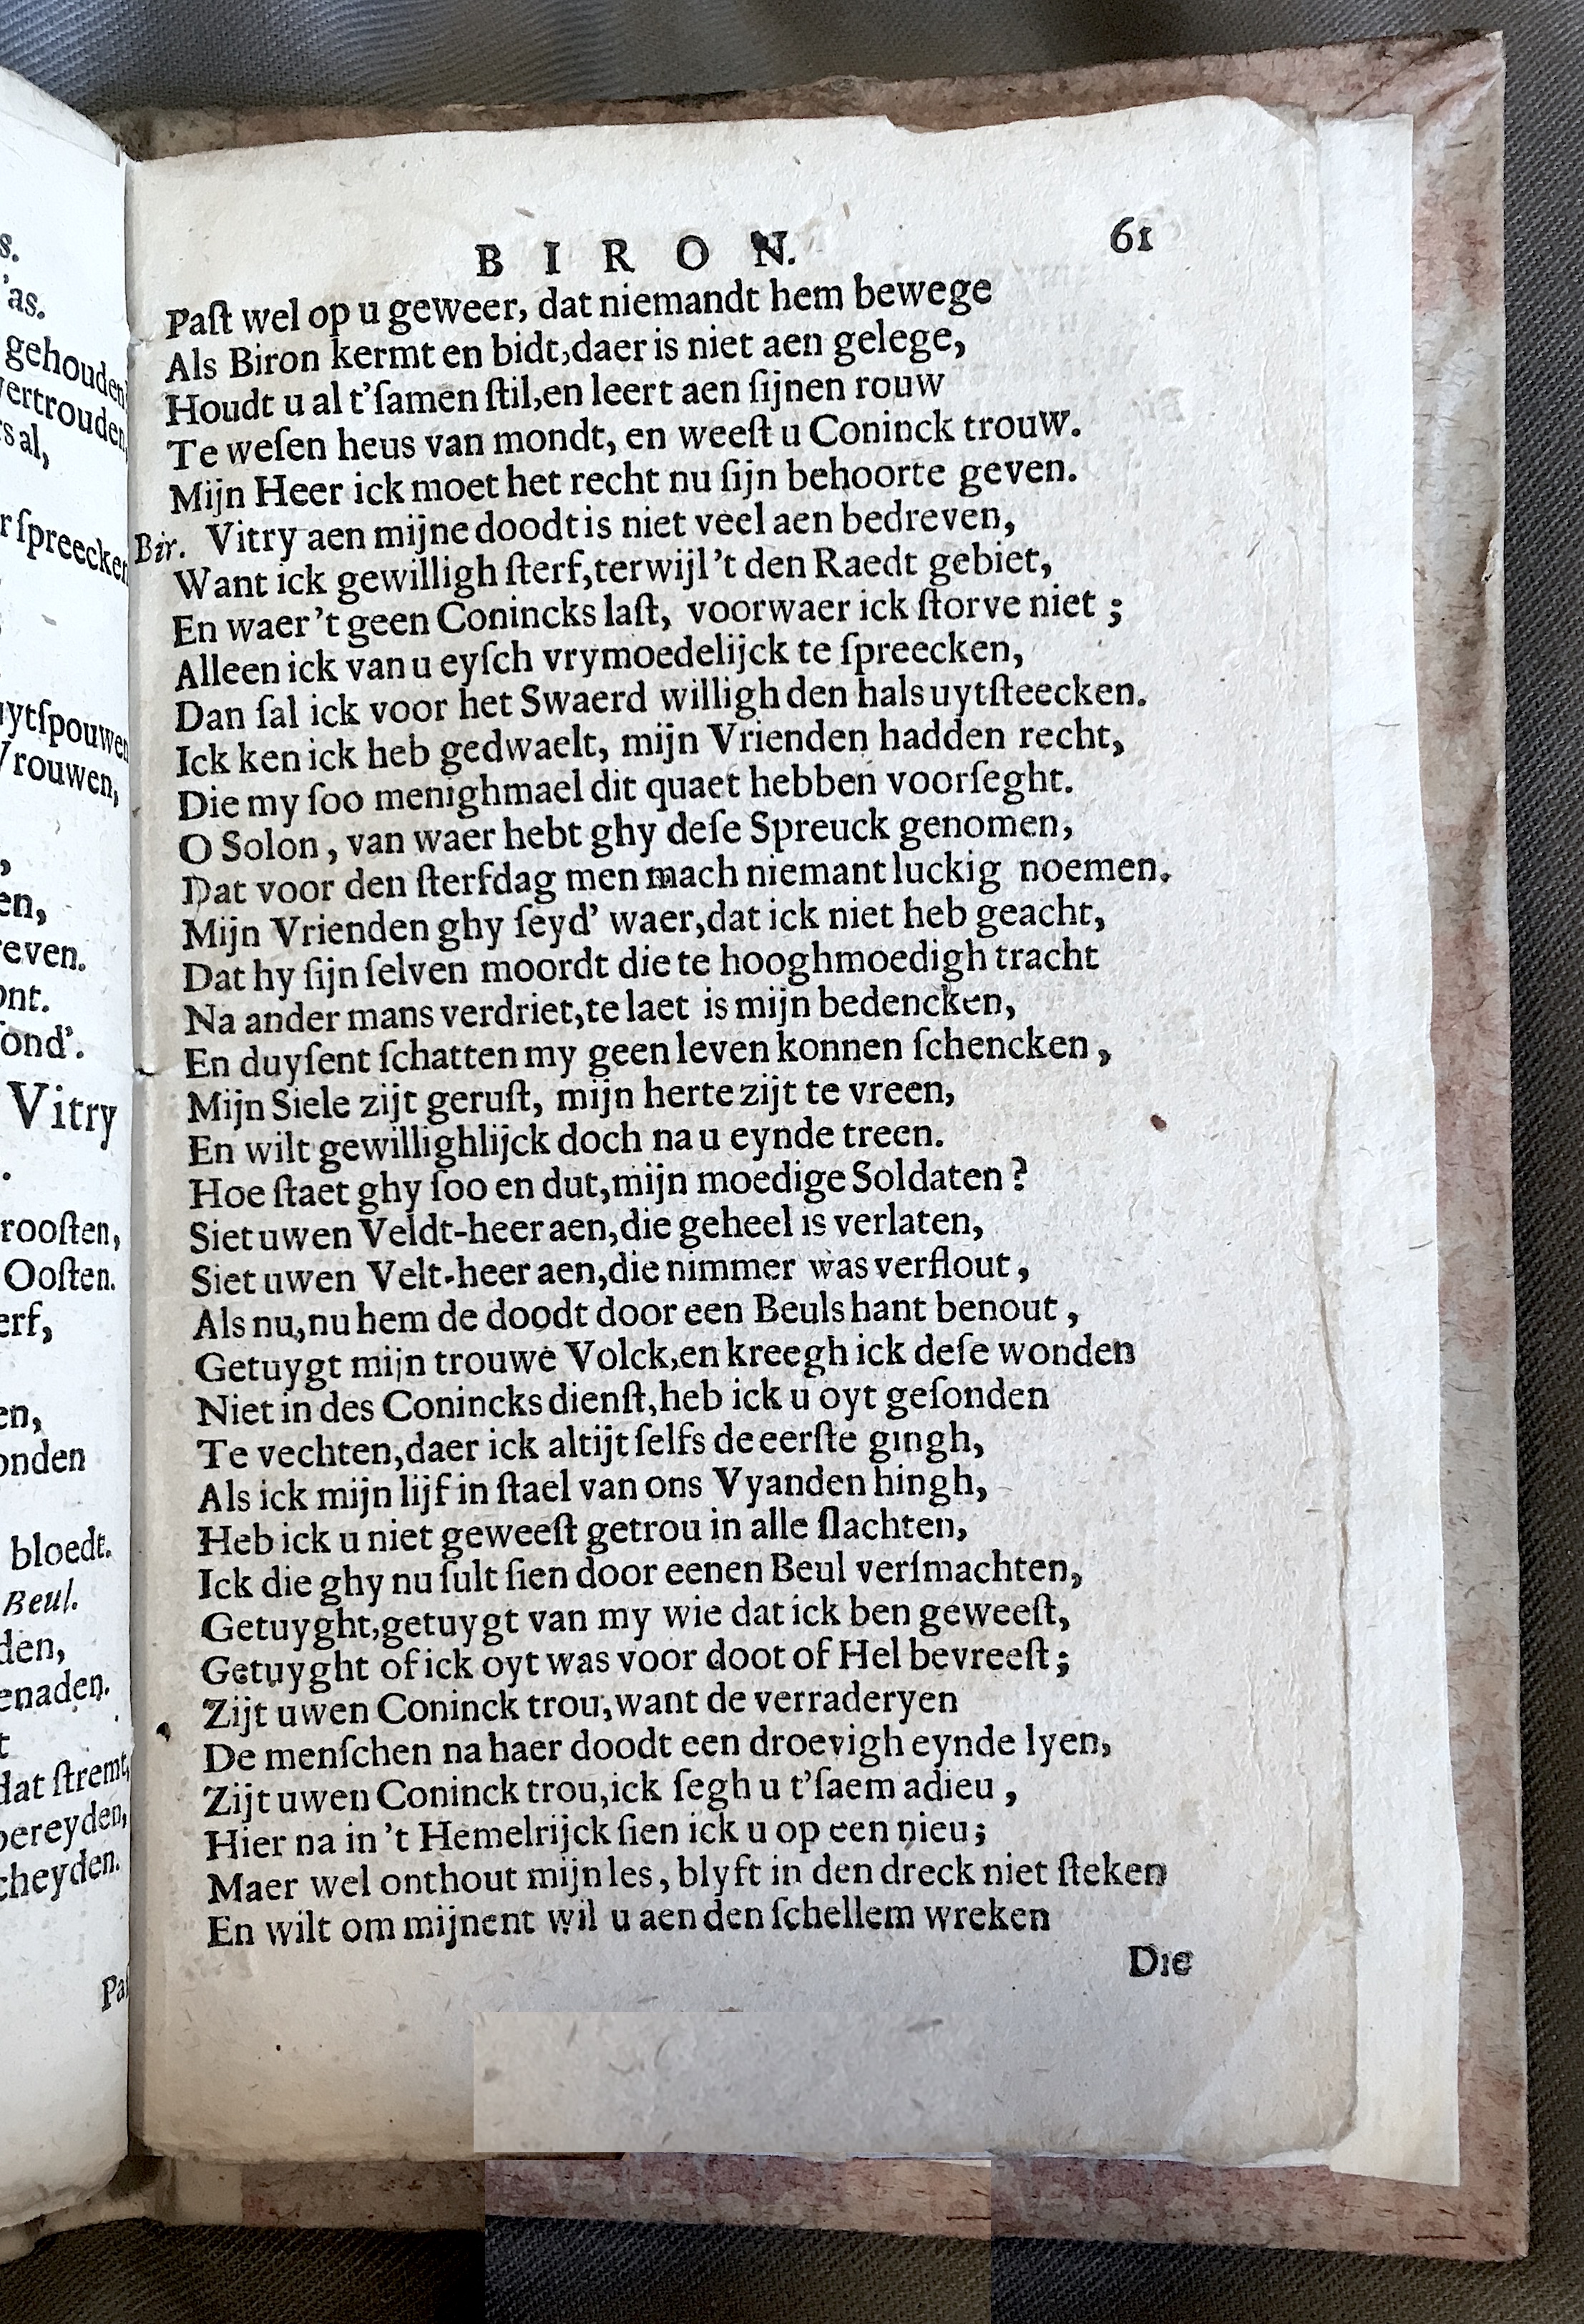 s.
'as.
gehouden
vertrouden,
s al,
r ſpreecken
uytſpouwen
Vrouwen,
,
en,
even.
ont.
ond'.
Vitry
.
rooſten,
Ooſten.
erf,
en,
onden
bloedt.
Beul.
den,
enaden.
t
dat ſtremt,
bereyden,
cheyden.
Paſ
B I R O N. 61
Paſt wel op u geweer, dat niemandt hem bewege
Als Biron kermt en bidt, daer is niet aen gelege,
Houdt u al t'ſamen ſtil, en leert aen ſijnen rouw
Te weſen heus van mondt, en weeſt u Coninck trouw.
Mijn Heer ick moet het recht nu ſijn behoorte geven.
Bir. Vitry aen mijne doodt is niet veel aen bedreven,
Want ick gewilligh ſterf, terwijl 't den Raedt gebiet,
En waer 't geen Conincks laſt, voorwaer ick ſtorve niet ;
Alleen ick van u eyſch vrymoedelijck te ſpreecken,
Dan ſal ick voor het Swaerd willigh den hals uytſteecken.
Ick ken ick heb gedwaelt, mijn Vrienden hadden recht,
Die my ſoo menighmael dit quaet hebben voorſeght.
O Solon, van waer hebt ghy deſe Spreuck genomen,
Dat voor den ſterfdag men mach niemant luckig noemen.
Mijn Vrienden ghy ſeyd' waer, dat ick niet heb geacht,
Dat hy ſijn ſelven moordt die te hooghmoedigh tracht
Na ander mans verdriet, te laet is mijn bedencken,
En duyſent ſchatten my geen leven konnen ſchencken,
Mijn Siele zijt geruſt, mijn herte zijt te vreen,
En wilt gewillighlijck doch na u eynde treen.
Hoe ſtaet ghy ſoo en dut, mijn moedige Soldaten?
Siet uwen Veldt-heer aen, die geheel is verlaten,
Siet uwen Velt-heer aen, die nimmer was verflout,
Als nu, nu hem de doodt door een Beuls hant benout,
Getuygt mijn trouwe Volck, en kreegh ick deſe wonden
Niet in des Conincks dienſt, heb ick u oyt geſonden
Te vechten, daer ick altijt ſelfs de eerſte gingh,
Als ick mijn lijf in ſtael van ons Vyanden hingh,
Heb ick u niet geweeſt getrou in alle ſlachten,
Ick die ghy nu ſult ſien door eenen Beul verſmachten,
Getuyght, getuygt van my wie dat ick ben geweeſt,
Getuyght of ick oyt was voor doot of Hel bevreeſt;
Zijt uwen Coninck trou, want de verraderyen
De menſchen na haer doodt een droevigh eynde lyen,
Zijt uwen Coninck trou, ick ſegh u t'ſaem adieu,
Hier na in 't Hemelrijck ſien ick u op een nieu;
Maer wel onthout mijn les, blyft in den dreck niet ſteken
En wilt om mijnent wil u aen den ſchellem wreken
Die